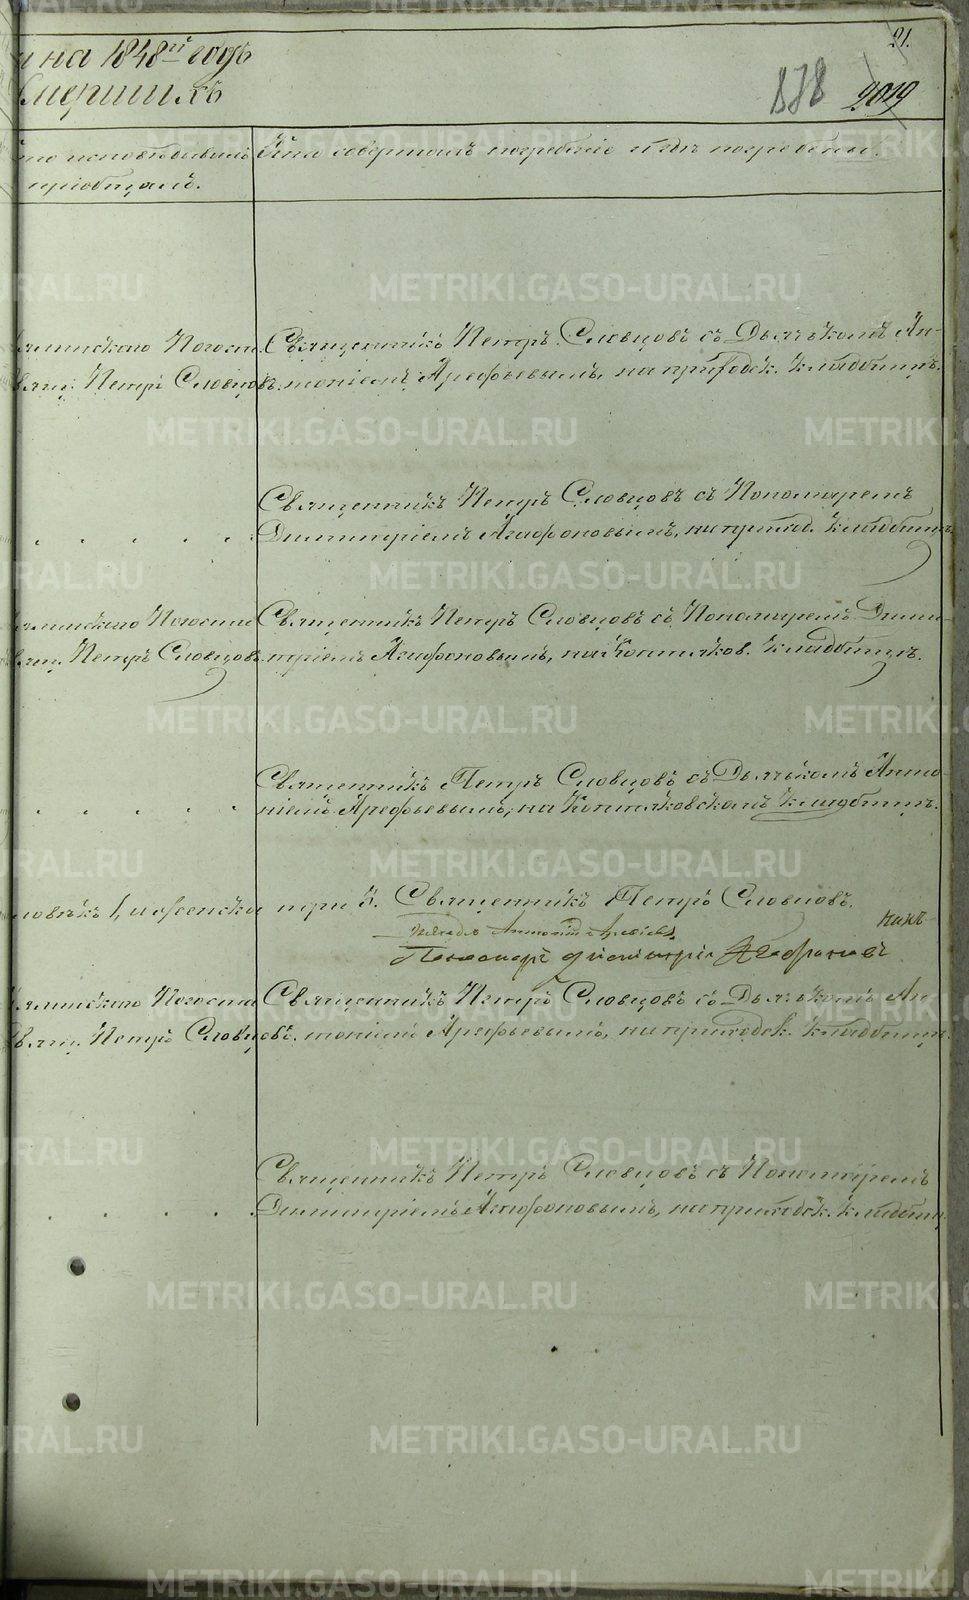 21.
и на 1848й годъ
Умершихъ
878 2019
Кто исповѣдывалъ
и пріобщалъ.
Кто совершалъ погребеніе и гдѣ погребены.
Погоста
Свящ. Петръ Словцовъ.
Священникъ Петръ Словцовъ съ Дьячькомъ Ан-
тоніемъ Арефьевымъ, на приходск. кладбищѣ.
Священникъ Петръ Словцовъ съ Пономаремъ
Димитріемъ Агафоновымъ, на приход. кладбищѣ
Погоста
Свящ. Петръ Словцовъ.
Священникъ Петръ Словцовъ съ Пономаремъ Дими-
тріемъ Агафоновымъ, на Коптяков. кладбищѣ.
Священникъ Петръ Словцовъ съ Дьячькомъ Анто-
ніемъ Арефьевымъ, на Коптяковскомъ кладбищѣ.
женска три 3. Священникъ Петръ Словцовъ.
Пономарь Димитрій Агафоновъ
Погоста
Свящ. Петръ Словцовъ.
Священникъ Петръ Словцовъ съ Дьячькомъ Ан-
тоніемъ Арефьевымъ, на приходск. кладбищѣ.
Священникъ Петръ Словцовъ съ Пономаремъ
Димитріемъ Агафоновымъ, на приходск. кладбищ.
METRIKI.GASO-URAL.RU